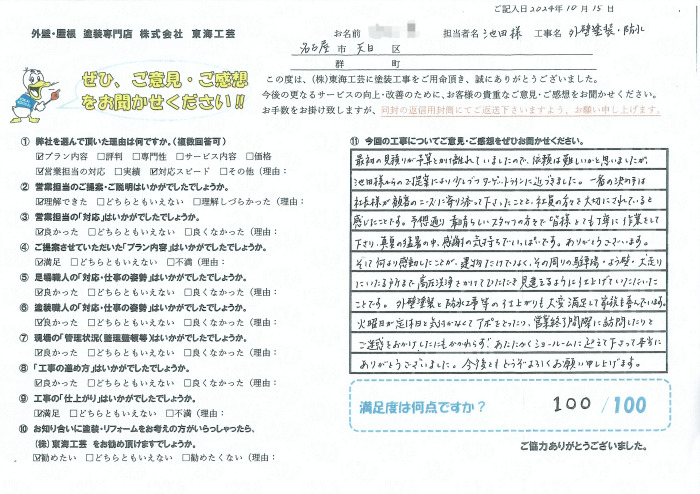 ご記入日 2024年10月15日
外壁・屋根 塗装専門店 株式会社 東海工芸
お名前
担当者名 池田様 工事名 外壁塗装・防水
名古屋市 天白 区
群 町
ぜひ、ご意見・ご感想
をお聞かせください!!
この度は、(株)東海工芸に塗装工事をご用命頂き、誠にありがとうございました。
今後の更なるサービスの向上・改善のために、お客様の貴重なご意見、ご感想をお聞かせください。
お手数をお掛け致しますが、同封の返信用封筒にてご返送下さいますよう、お願い申し上げます。
① 弊社を選んで頂いた理由は何ですか。(複数回答可)
☑プラン内容 □評判 □専門性 □サービス内容 □価格
☑営業担当の対応 □実績 ☑対応スピード □その他(理由:
② 営業担当のご提案・ご説明はいかがでしたでしょうか。
☑理解できた □どちらともいえない □理解しづらかった(理由:
③ 営業担当の「対応」はいかがでしたでしょうか。
☑良かった □どちらともいえない □良くなかった(理由:
④ ご提案させていただいた「プラン内容」はいかがでしたでしょうか。
☑満足 □どちらともいえない □不満(理由:
⑤ 足場職人の「対応・仕事の姿勢」はいかがでしたでしょうか。
☑良かった □どちらともいえない □良くなかった(理由:
⑥ 塗装職人の「対応・仕事の姿勢」はいかがでしたでしょうか。
☑良かった □どちらともいえない □良くなかった(理由:
⑦ 現場の「管理状況(整理整頓等)はいかがでしたでしょうか。
☑良かった □どちらともいえない □良くなかった(理由:
⑧ 「工事の進め方」はいかがでしたでしょうか。
☑良かった □どちらともいえない □良くなかった(理由:
⑨ 工事の「仕上がり」はいかがでしたでしょうか。
☑満足 □どちらともいえない □不満(理由:
⑩ お知り合いに塗装・リフォームをお考えの方がいらっしゃったら、
(株)東海工芸 をお勧め頂けますでしょうか。
☑勧めたい □どちらともいえない □勧めたくない(理由:
⑪ 今回の工事についてご意見・ご感想をぜひお聞かせください。
最初の見積りが予算とかけ離れていましたので、依頼は難しいかと思いましたが、
池田様からのご提案により少しづつターゲットラインに近づきました。一番の決め手は
社長様が顧客のニーズに寄り添って下さったことと、社員の方々を大切にされていると
感じたことです。予想通り素晴らしいスタッフの方々で皆様とても丁寧に作業をして
下さり、真夏の猛暑の中、感謝の気持ちでいっぱいです。ありがとうございます。
そして何より感動したことが、建物だけでなく、その周りの駐車場・よう壁・犬走り
にいたる所まで高圧洗浄をかけていただき見違えるように仕上げていただいた
ことです。外壁塗装と防水工事等の仕上がりも大変満足して家族も喜んでいます。
火曜日が定休日と気付かなくてアポをとったり、営業終了間際に訪問したりと
ご迷惑をおかけしたにもかかわらず、あたたかくショールームに迎えて下さって本当に
ありがとうございました。今後ともどうぞよろしくお願い申し上げます。
満足度は何点ですか? 100 /100
ご協力ありがとうございました。